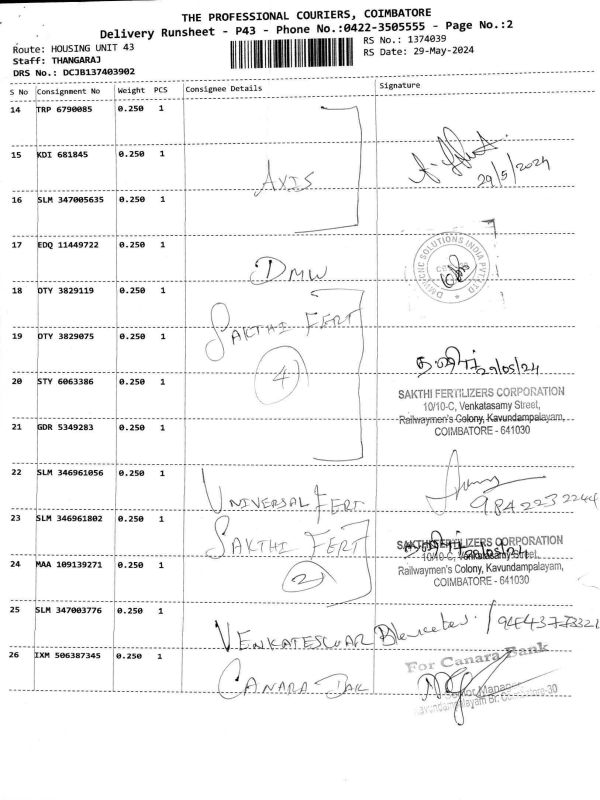 THE PROFESSIONAL COURIERS, COIMBATORE
Delivery Runsheet - P43 - Phone No.:0422-3505555 - Page No.:2
Route: HOUSING UNIT 43
RS No.: 1374039
Staff: THANGARAJ
RS Date: 29-May-2024
DRS No.: DCJB137403902
S No Consignment No Weight PCS Consignee Details Signature
14 TRP 6790085 0.250 1
15 KDI 681845 0.250 1
AXIS
29/5/2024
16 SLM 347005635 0.250 1
17 EDQ 11449722 0.250 1
DMW
DMWCNC SOLUTIONS INDIA PVT LTD
18 OTY 3829119 0.250 1
SAKTHI FERT
19 OTY 3829075 0.250 1
29/05/24
20 STY 6063386 0.250 1
4
SAKTHI FERTILIZERS CORPORATION
10/10-C, Venkatasamy Street,
Railwaymen's Colony, Kavundampalayam,
COIMBATORE - 641030
21 GDR 5349283 0.250 1
22 SLM 346961056 0.250 1
UNIVERSAL FERT
9842232244
23 SLM 346961802 0.250 1
SAKTHI FERT
SAKTHI FERTILIZERS CORPORATION
10/10-C, Venkatasamy Street,
24 MAA 109139271 0.250 1
2
Railwaymen's Colony, Kavundampalayam,
COIMBATORE - 641030
25 SLM 347003776 0.250 1
VENKATESWAR
26 IXM 506387345 0.250 1
For Canara Bank
CANARA
Senior Manager